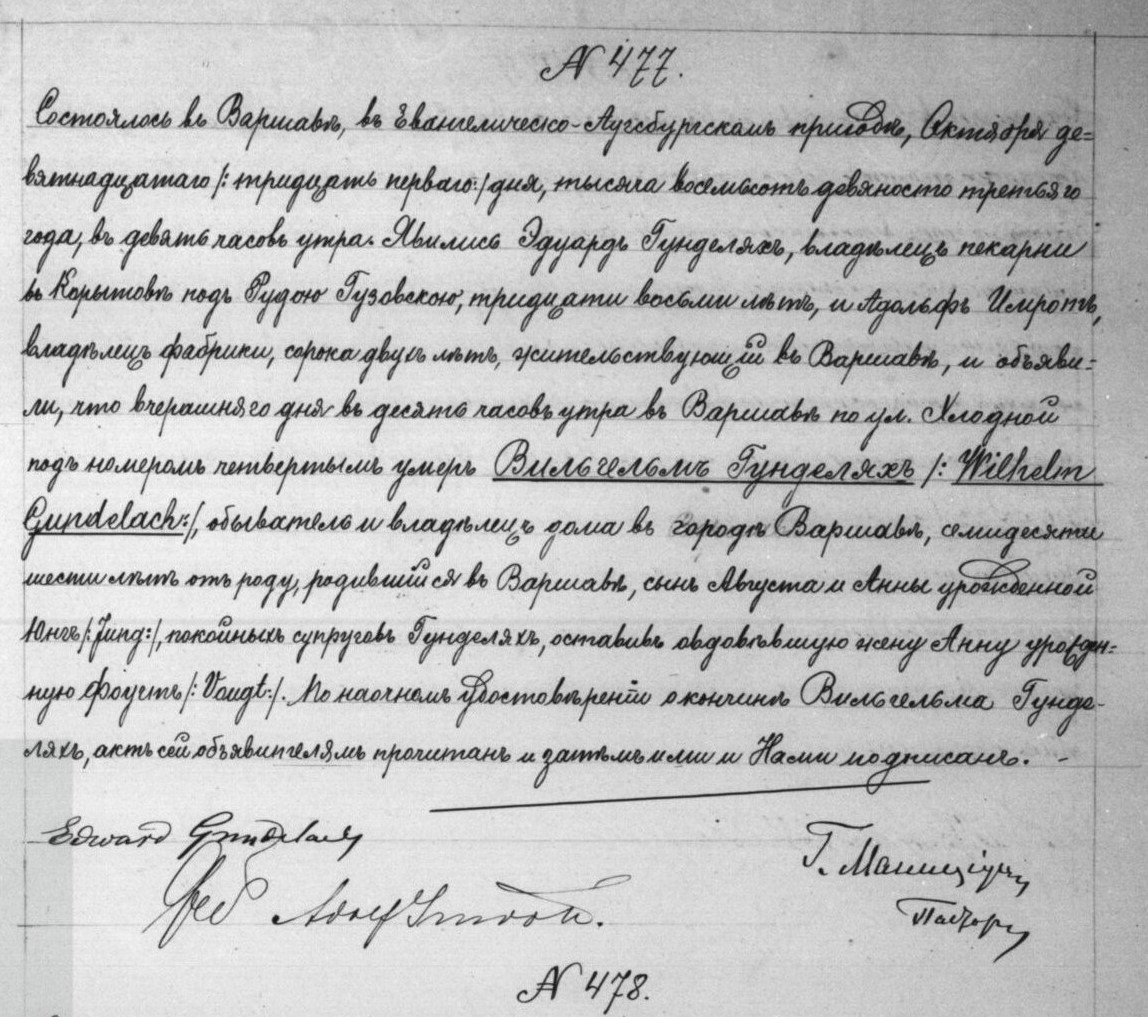 № 477.
Состоялось въ Варшавѣ, въ Евангелическо-Аугсбургскомъ приходѣ, Октября де=
вятнадцатаго /: тридцать перваго:/ дня, тысяча восемьсотъ девяносто третьяго
года, въ девять часовъ утра. Явились Эдуардъ Гунделяхъ, владѣлецъ пекарни
въ Корытовѣ подъ Рудою Гузовскою, тридцати восьми лѣтъ, и Адольфъ Имротъ,
владѣлецъ фабрики, сорока двухъ лѣтъ, жительствующій въ Варшавѣ, и объяви=
ли, что вчерашняго дня въ десять часовъ утра въ Варшавѣ по ул. Хлодной
подъ номеромъ четвертымъ умеръ Вильгельмъ Гунделяхъ /: Wilhelm
Gundelach:/, обыватель и владѣлецъ дома въ городѣ Варшавѣ, семидесяти
шести лѣтъ отъ роду, родившійся въ Варшавѣ, сынъ Августа и Анны урожденной
Юнгъ /: Jung:/, покойныхъ супруговъ Гунделяхъ, оставивъ овдовѣвшую жену Анну урожден=
ную Фоугтъ /: Vougt:/. По наочномъ удостовѣреніи о кончинѣ Вильгельма Гунде-
ляхъ, актъ сей объявителямъ прочитанъ и затѣмъ ими и Нами подписанъ. -
Edward Gundelach
Adolf Imroth.
Г. Маниціусъ
Пасторъ
№ 478.